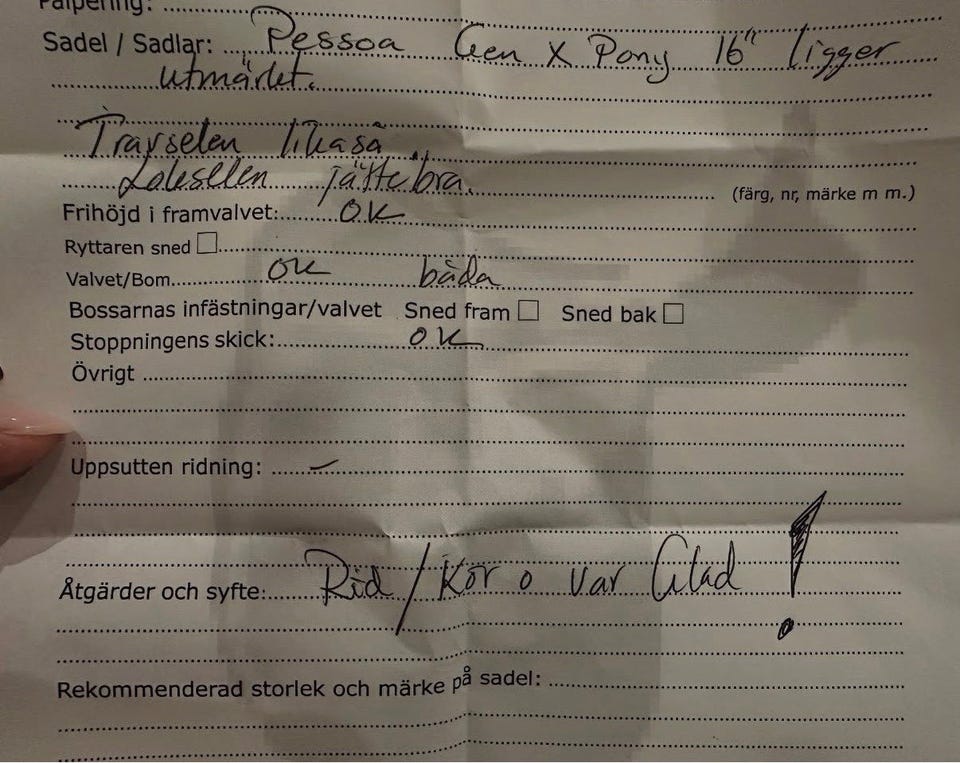 Palpering:
Sadel / Sadlar: Pessoa Gen X Pony 16" ligger
utmärkt.
Travselen likaså
jättebra.
(färg, nr, märke m m.)
Frihöjd i framvalvet: OK
Ryttaren sned ☐
Valvet/Bom OK båda
Bossarnas infästningar/valvet Sned fram ☐ Sned bak ☐
Stoppningens skick: OK
Övrigt
Uppsutten ridning: –
Åtgärder och syfte: Rid / Kör o var Glad !
Rekommenderad storlek och märke på sadel: